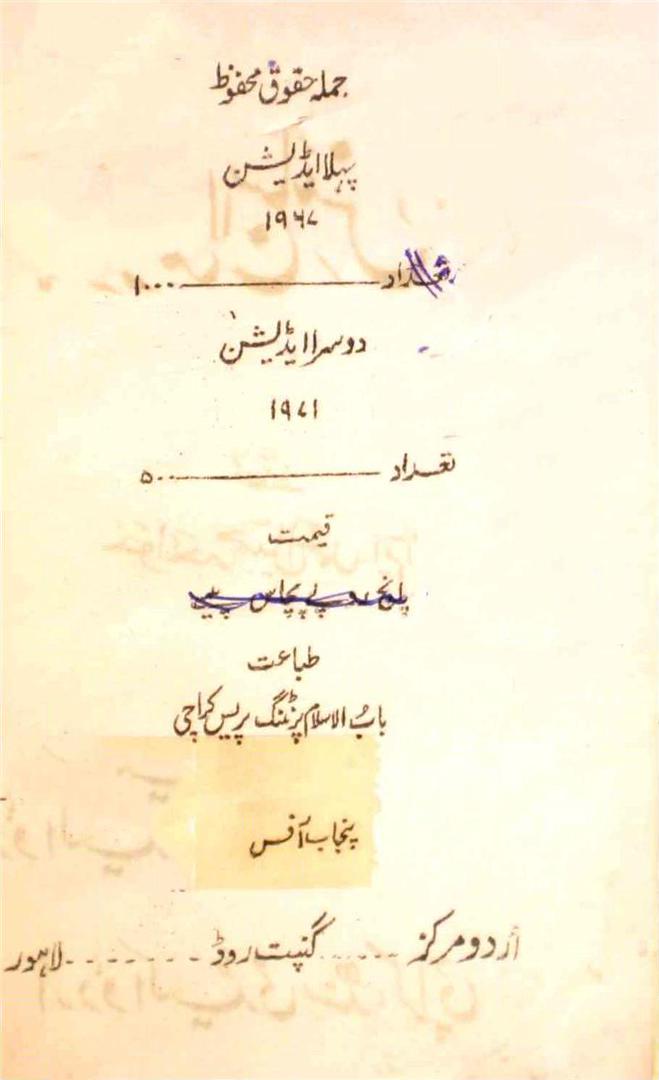 جملہ حقوق محفوظ
پہلا ایڈیشن
۱۹۶۷
تعداد ــــــــــ ۱۰۰۰
دوسرا ایڈیشن
۱۹۷۱
تعداد ــــــــــ ۵۰۰
قیمت
پانچ روپے پچاس پیسے
طباعت
بابُ الاسلام پرنٹنگ پریس کراچی
پنجاب آفس
اردو مرکز ...... گنپت روڈ -------- لاہور